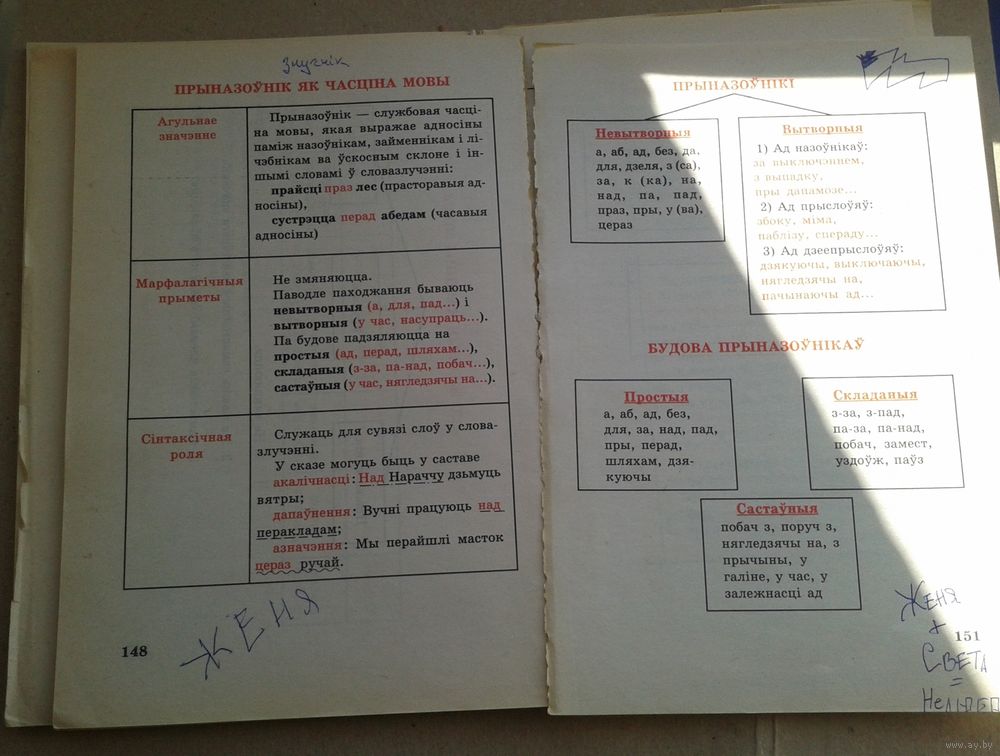 Злучнік
ПРЫНАЗОЎНІК ЯК ЧАСЦІНА МОВЫ
Агульнае
значэнне
Прыназоўнік — службовая часці-
на мовы, якая выражае адносіны
паміж назоўнікам, займеннікам і лі-
чэбнікам ва ўскосным склоне і ін-
шымі словамі ў словазлучэнні:
прайсці праз лес (прасторавыя ад-
носіны),
сустрэцца перад абедам (часавыя
адносіны)
Марфалагічныя
прыметы
Не змяняюцца.
Паводле паходжання бываюць
невытворныя (а, для, пад...) і
вытворныя (у час, насупраць...).
Па будове падзяляюцца на
простыя (ад, перад, шляхам...),
складаныя (з-за, па-над, побач...),
састаўныя (у час, нягледзячы на...).
Сінтаксічная
роля
Служаць для сувязі слоў у слова-
злучэнні.
У сказе могуць быць у саставе
акалічнасці: Над Нараччу дзьмуць
вятры;
дапаўнення: Вучні працуюць над
перакладам;
азначэння: Мы перайшлі масток
цераз ручай.
148
ЖЕНЯ
ПРЫНАЗОЎНІКІ
Невытворныя
а, аб, ад, без, да,
для, дзеля, з (са),
за, к (ка), на,
над, па, пад,
праз, пры, у (ва),
цераз
Вытворныя
1) Ад назоўнікаў:
за выключэннем,
з выпадку,
пры дапамозе...
2) Ад прыслоўяў:
збоку, міма,
паблізу, спераду...
3) Ад дзеепрыслоўяў:
дзякуючы, выключаючы,
нягледзячы на,
пачынаючы ад...
БУДОВА ПРЫНАЗОЎНІКАЎ
Простыя
а, аб, ад, без,
для, за, над, пад,
пры, перад,
шляхам, дзя-
куючы
Складаныя
з-за, з-пад,
па-за, па-над,
побач, замест,
уздоўж, паўз
Састаўныя
побач з, поруч з,
нягледзячы на, з
прычыны, у
галіне, у час, у
залежнасці ад
151
ЖЕНЯ
+
СВЕТА
=
www.ay.by